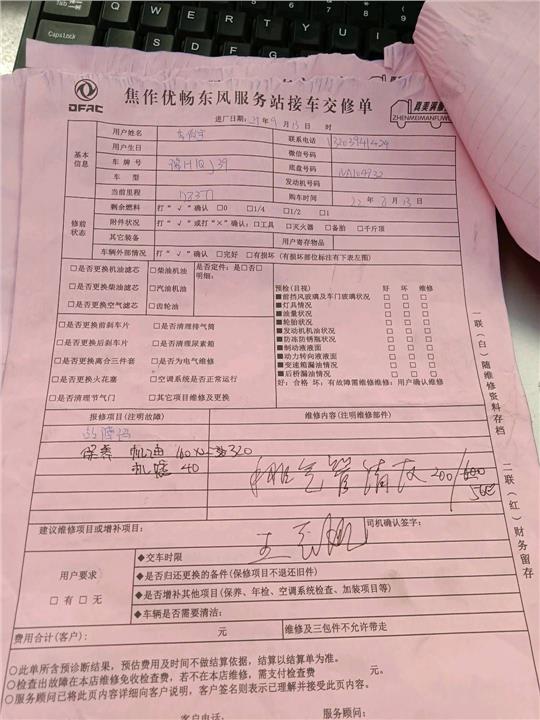 Q W E R T Y U I O P
CapsLock
DFAC
焦作优畅东风服务站接车交修单
真美满服务
ZHENMEIMANFUWU
进厂日期:21年9月13日 时
基本信息
用户姓名
联系电话
用户生日
微信号码
车牌号 豫H1QJ39
底盘号码 NA104932
车型
发动机号码
当前里程
购车时间
修前状态
剩余燃料 打“√”确认 □0 □1/4 □1/2 □1
附件状况 打“√”或打“×”确认:□工具 □灭火器 □备胎 □千斤顶
其它装备
用户寄存物品
车辆外部情况 打“√”确认 □完好 □有损坏(有损坏部位标注有下表左图)
□是否更换机油滤芯 □柴油机油 是否定件:是□否□
□是否更换柴油滤芯 □汽油机油 明细:
□是否更换空气滤芯 □齿轮油
□是否更换前刹车片 □是否清理排气筒
□是否更换后刹车片 □是否清理尿素箱
□是否更换离合三件套 □是否为电气维修
□是否更换火花塞 □空调系统是否正常运行
□是否清理节气门 □其它项目维修及更换
预检(目视) 好 坏 维修
■前挡风玻璃及车门玻璃状况 □ □ □
■灯具情况 □ □ □
■油量状况 □ □ □
■轮胎状况 □ □ □
■发动机机油状况 □ □ □
■防冻防锈瓶状况 □ □ □
■制动液液面 □ □ □
■动力转向液液面 □ □ □
■变速箱漏油情况 □ □ □
■后桥漏油情况 □ □ □
好:合格 坏:有故障需维修维修:用户确认维修
报修项目(注明故障)
维修内容(注明维修部件)
保养 机油 160×2=320
机滤 40
排气管清灰 200/
500
建议维修项目或增补项目:
司机确认签字:
用户要求
□有 □无
◆交车时限
◆是否归还更换的备件(保修项目不退还旧件)
◆是否增补其他项目(保养、年检、空调系统检查、加装项目等)
◆车辆是否需要清洁:
费用合计(客户): 元
维修及三包件不允许带走
○此单所含预诊断结果,预估费用及时间不做结算依据,结算以结算单为准。
○检查出故障在本店维修免收检查费,若不在本店维修,需支付检查费 元。
○服务顾问已将此页内容详细向客户说明,客户签名则表示已理解并接受此页内容。
客户电话:
服务顾问:
一联(白)随维修资料存档
二联(红)财务留存